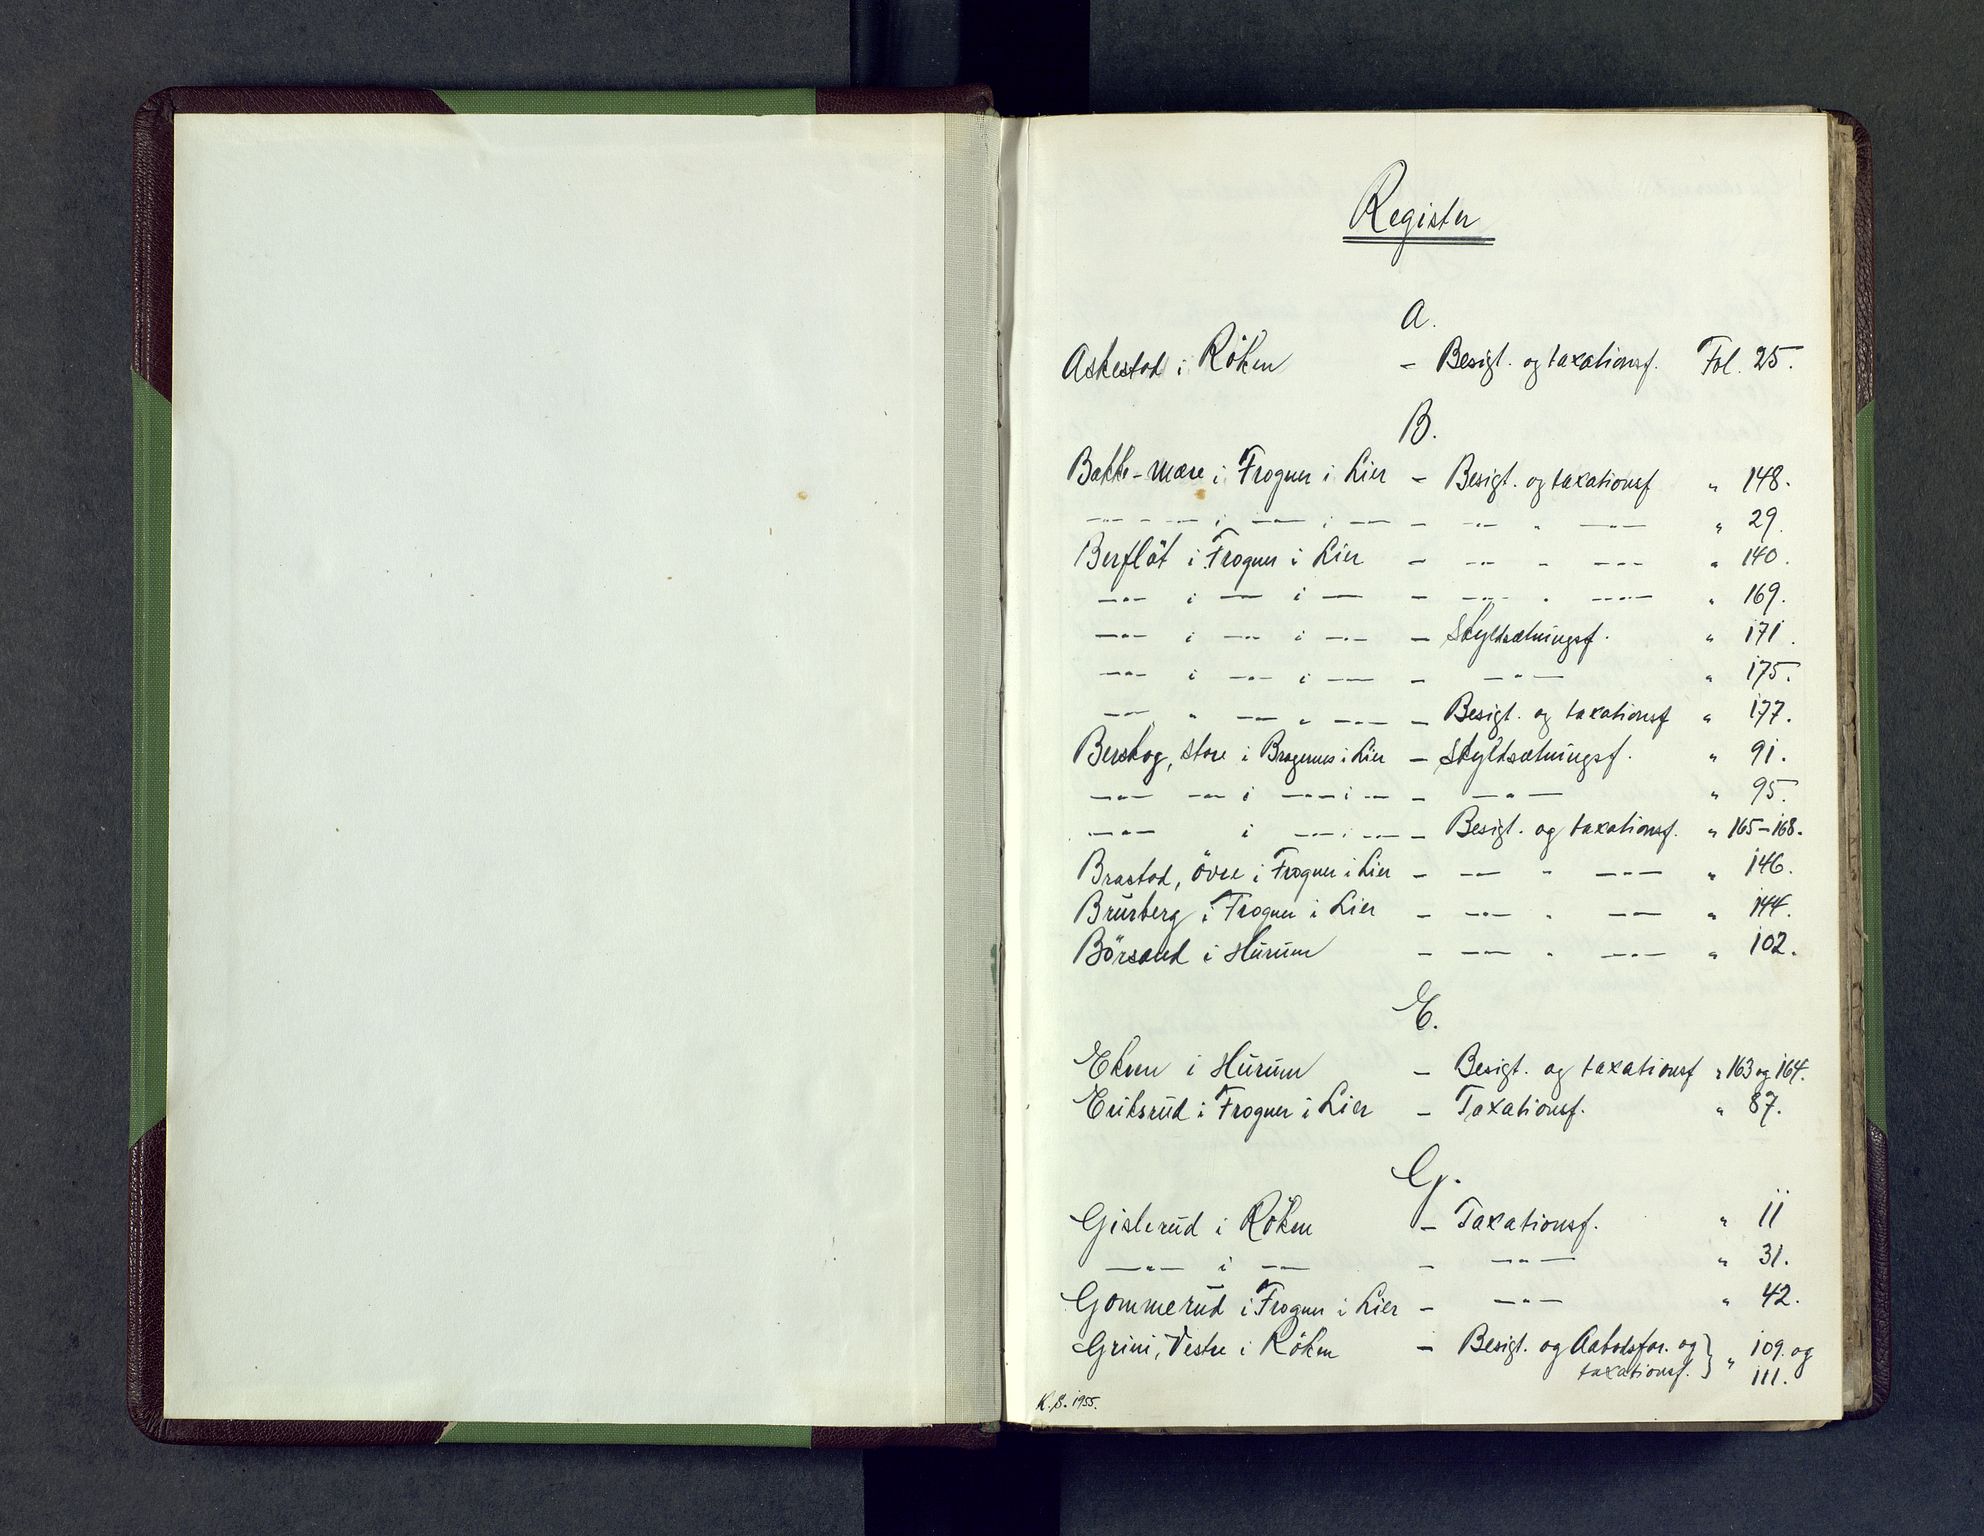 Register
A.
Askestad i Röken – Besigt. og taxationsf. Fol. 25.
B.
Bakke-mære i Frogner i Lier – Besigt. og taxationsf " 148.
—"— - —"— i —"— i —"— – —"— " —"— " 29.
Berflöt i Frogner i Lier – —"— " —"— " 140.
—"— i —"— i —"— – —"— " —"— " 169.
—"— i —"— i —"— – Skyldsætningsf. " 171.
—"— i —"— i —"— – —"— " 175.
—"— " —"— " —"— – Besigt. og taxationsf " 177.
Berskog, store i Bragernes i Lier – Skyldsætningsf. " 91.
—"— —"— i —"— i —"— – —"— " 95.
—"— i —"— i —"— – Besigt. og taxationsf. " 165–168.
Brastad, övre i Frogner i Lier – —"— " —"— " 146.
Brurberg i Frogner i Lier – —"— " —"— " 144.
Börsand i Hurum – —"— " —"— " 102.
E.
Ekren i Hurum – Besigt. og taxationsf " 163 og 164.
Eriksrud i Frogner i Lier – Taxationsf. " 87.
G.
Gislerud i Röken – Taxationsf. " 11
—"— i —"— – —"— " 31.
Gommerud i Frogner i Lier – —"— " 42.
Grini, Vestre i Röken – Besigt. og Aabodsfor. og } " 109. og
taxationsf. } 111.
K. S. 1955.